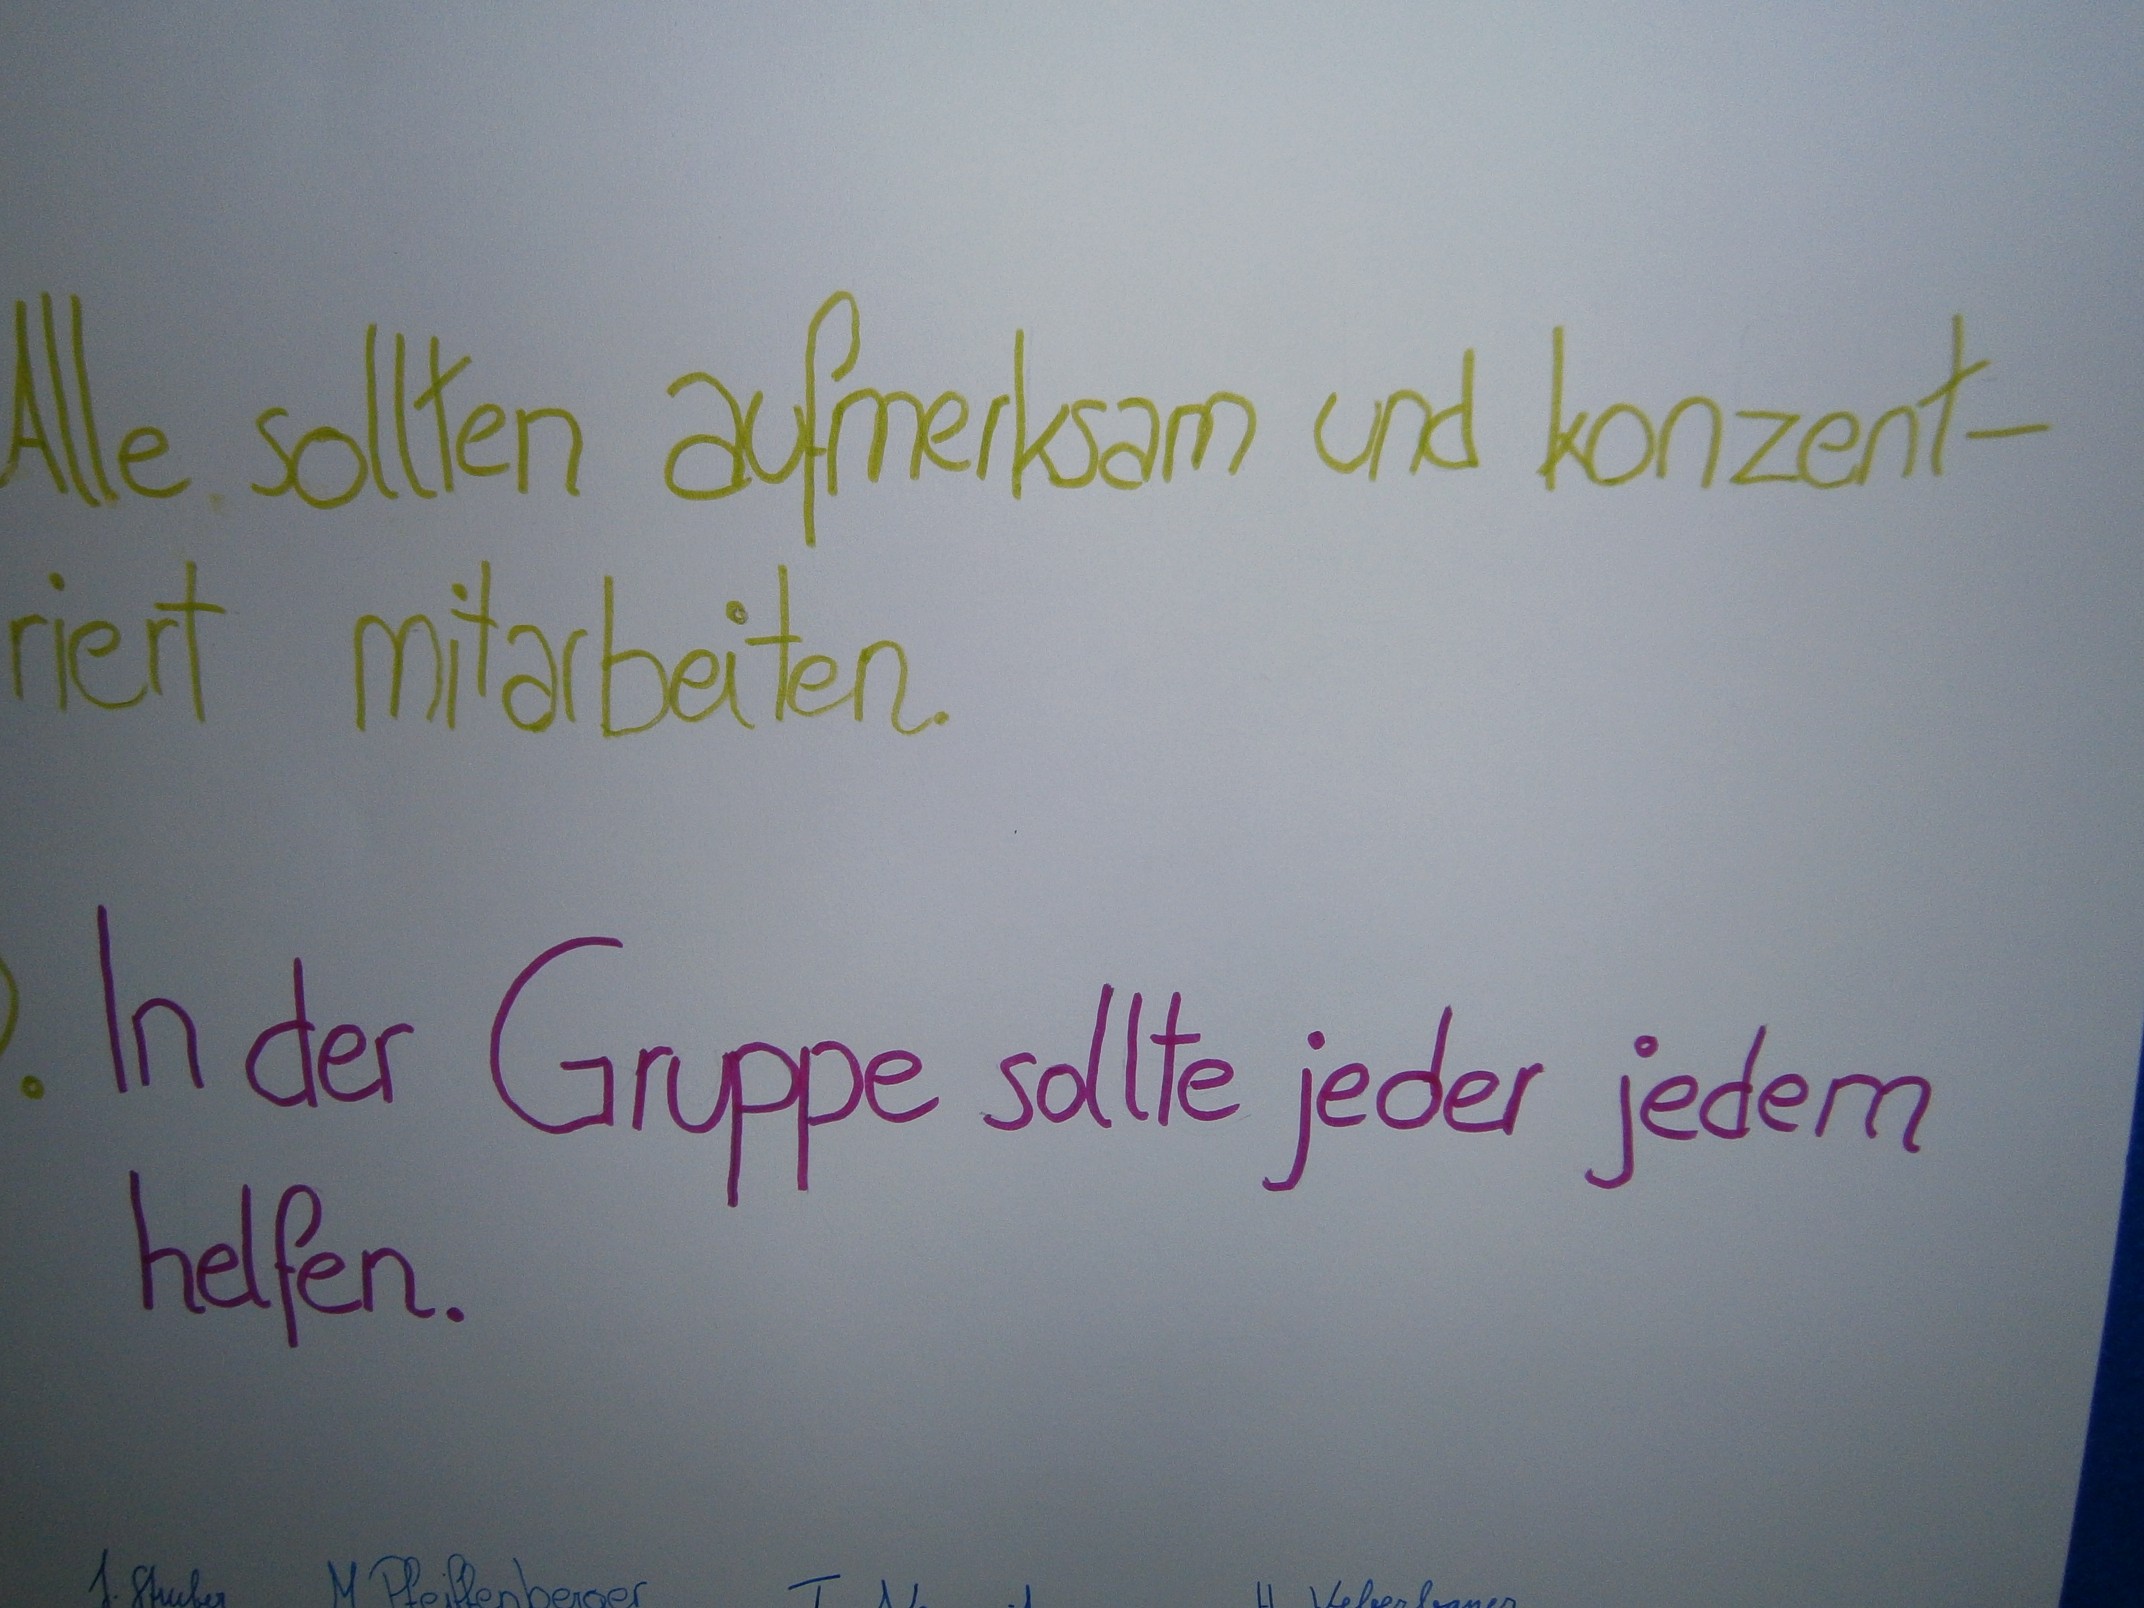 Alle sollten aufmerksam und konzent-
riert mitarbeiten.
. In der Gruppe sollte jeder jedem
helfen.
M Pfeiffenberger